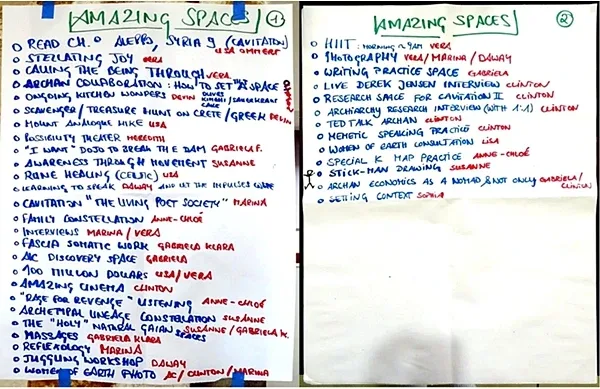 AMAZING SPACES 1
READ CH. 9 ALEPPO, SYRIA (CAVITATION)
STELLATING JOY VERA
CALLING THE BEING THROUGH VERA
ARCHAN COLLABORATION: HOW TO SET A SPACE
ONGOING KITCHEN WONDERS DEVIN OLIVES KIMCHI/SAUERKRAUT CAKE
SCAVENGER/TREASURE HUNT ON CRETE/GREEK DEVIN
MOUNT ANALOGUE HIKE LISA
POSSIBILITY THEATER MEREDITH
"I WANT" DOJO TO BREAK THE DAM GABRIELA F.
AWARENESS THROUGH MOVEMENT SUSANNE
RUNE HEALING (CELTIC) LISA
LEARNING TO SPEAK DAWAY AND LET THE IMPULSES
CAVITATION "THE LIVING POET SOCIETY" MARINA
FAMILY CONSTELLATION ANNE-CHLOÉ
INTERVIEWS MARINA/VERA
FASCIA SOMATIC WORK GABRIELA KLARA
DISCOVERY SPACE GABRIELA
100 MILLION DOLLARS LISA/VERA
AMAZING CINEMA CLINTON
"RAGE FOR REVENGE" LISTENING ANNE-CHLOÉ
ARCHETYPAL LINEAGE CONSTELLATION SUSANNE
THE "HOLY" NATURAL GAIAN SPACES SUSANNE/GABRIELA K.
MASSAGES GABRIELA KLARA
REFLEXOLOGY MARINA
JUGGLING WORKSHOP DAWAY
WOMEN OF EARTH PHOTO AC/CLINTON/MARINA
AMAZING SPACES 2
HIIT: MORNING ~9AM VERA
PHOTOGRAPHY VERA/MARINA/DAWAY
WRITING PRACTICE SPACE GABRIELA
LIVE DEREK JENSEN INTERVIEW CLINTON
RESEARCH SPACE FOR CAVITATION II CLINTON
ARCHIARCHY RESEARCH INTERVIEW (WITH 1:1) CLINTON
TED TALK ARCHAN CLINTON
MEMETIC SPEAKING PRACTICE CLINTON
WOMEN OF EARTH CONSULTATION LISA
SPECIAL K MAP PRACTICE ANNE-CHLOÉ
STICK-MAN DRAWING SUSANNE
ARCHAN ECONOMICS AS A NOMAD & NOT ONLY GABRIELA/CLINTON
SETTING CONTEXT SOPHIA